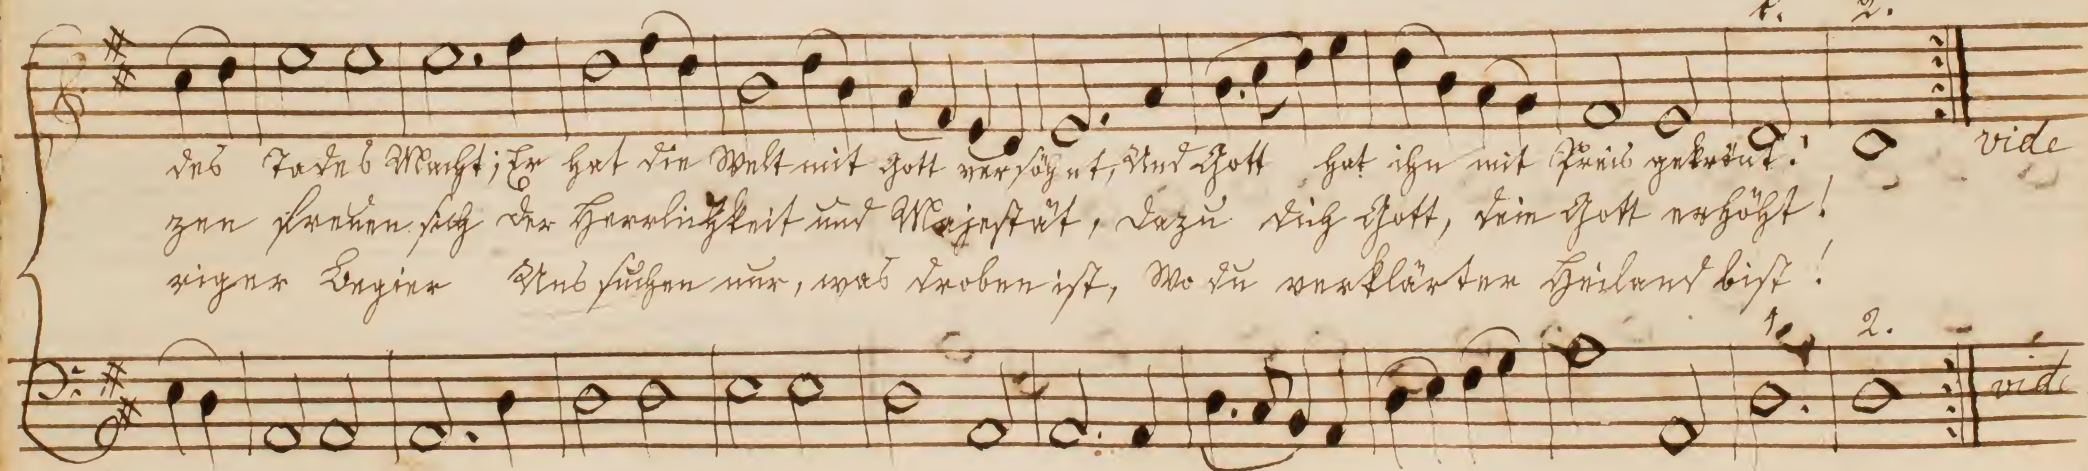 1. 2.
des Todes Macht; Er hat die Welt mit Gott versöhnt, Und Gott hat ihn mit Preis gekrönt!
vide
zen freuen sich der Herrlichkeit und Majestät, dazu dich Gott, dein Gott erhöht!
riger Begier Uns suchen nur, was droben ist, Wo du verklärter Heiland bist!
1. 2.
vide